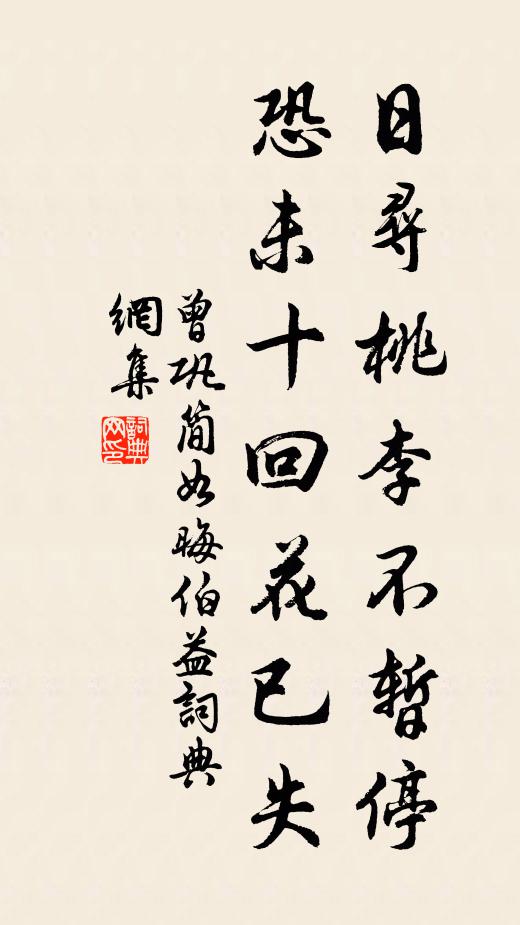 日尋桃李不暫停
恐未十回花已失
曾巩简如晦伯益詞典
網集
詞典
网印